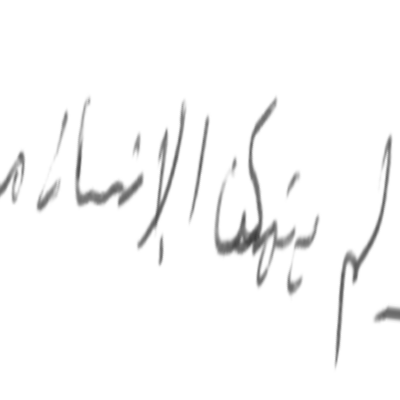 لم يتمكن الإنسان